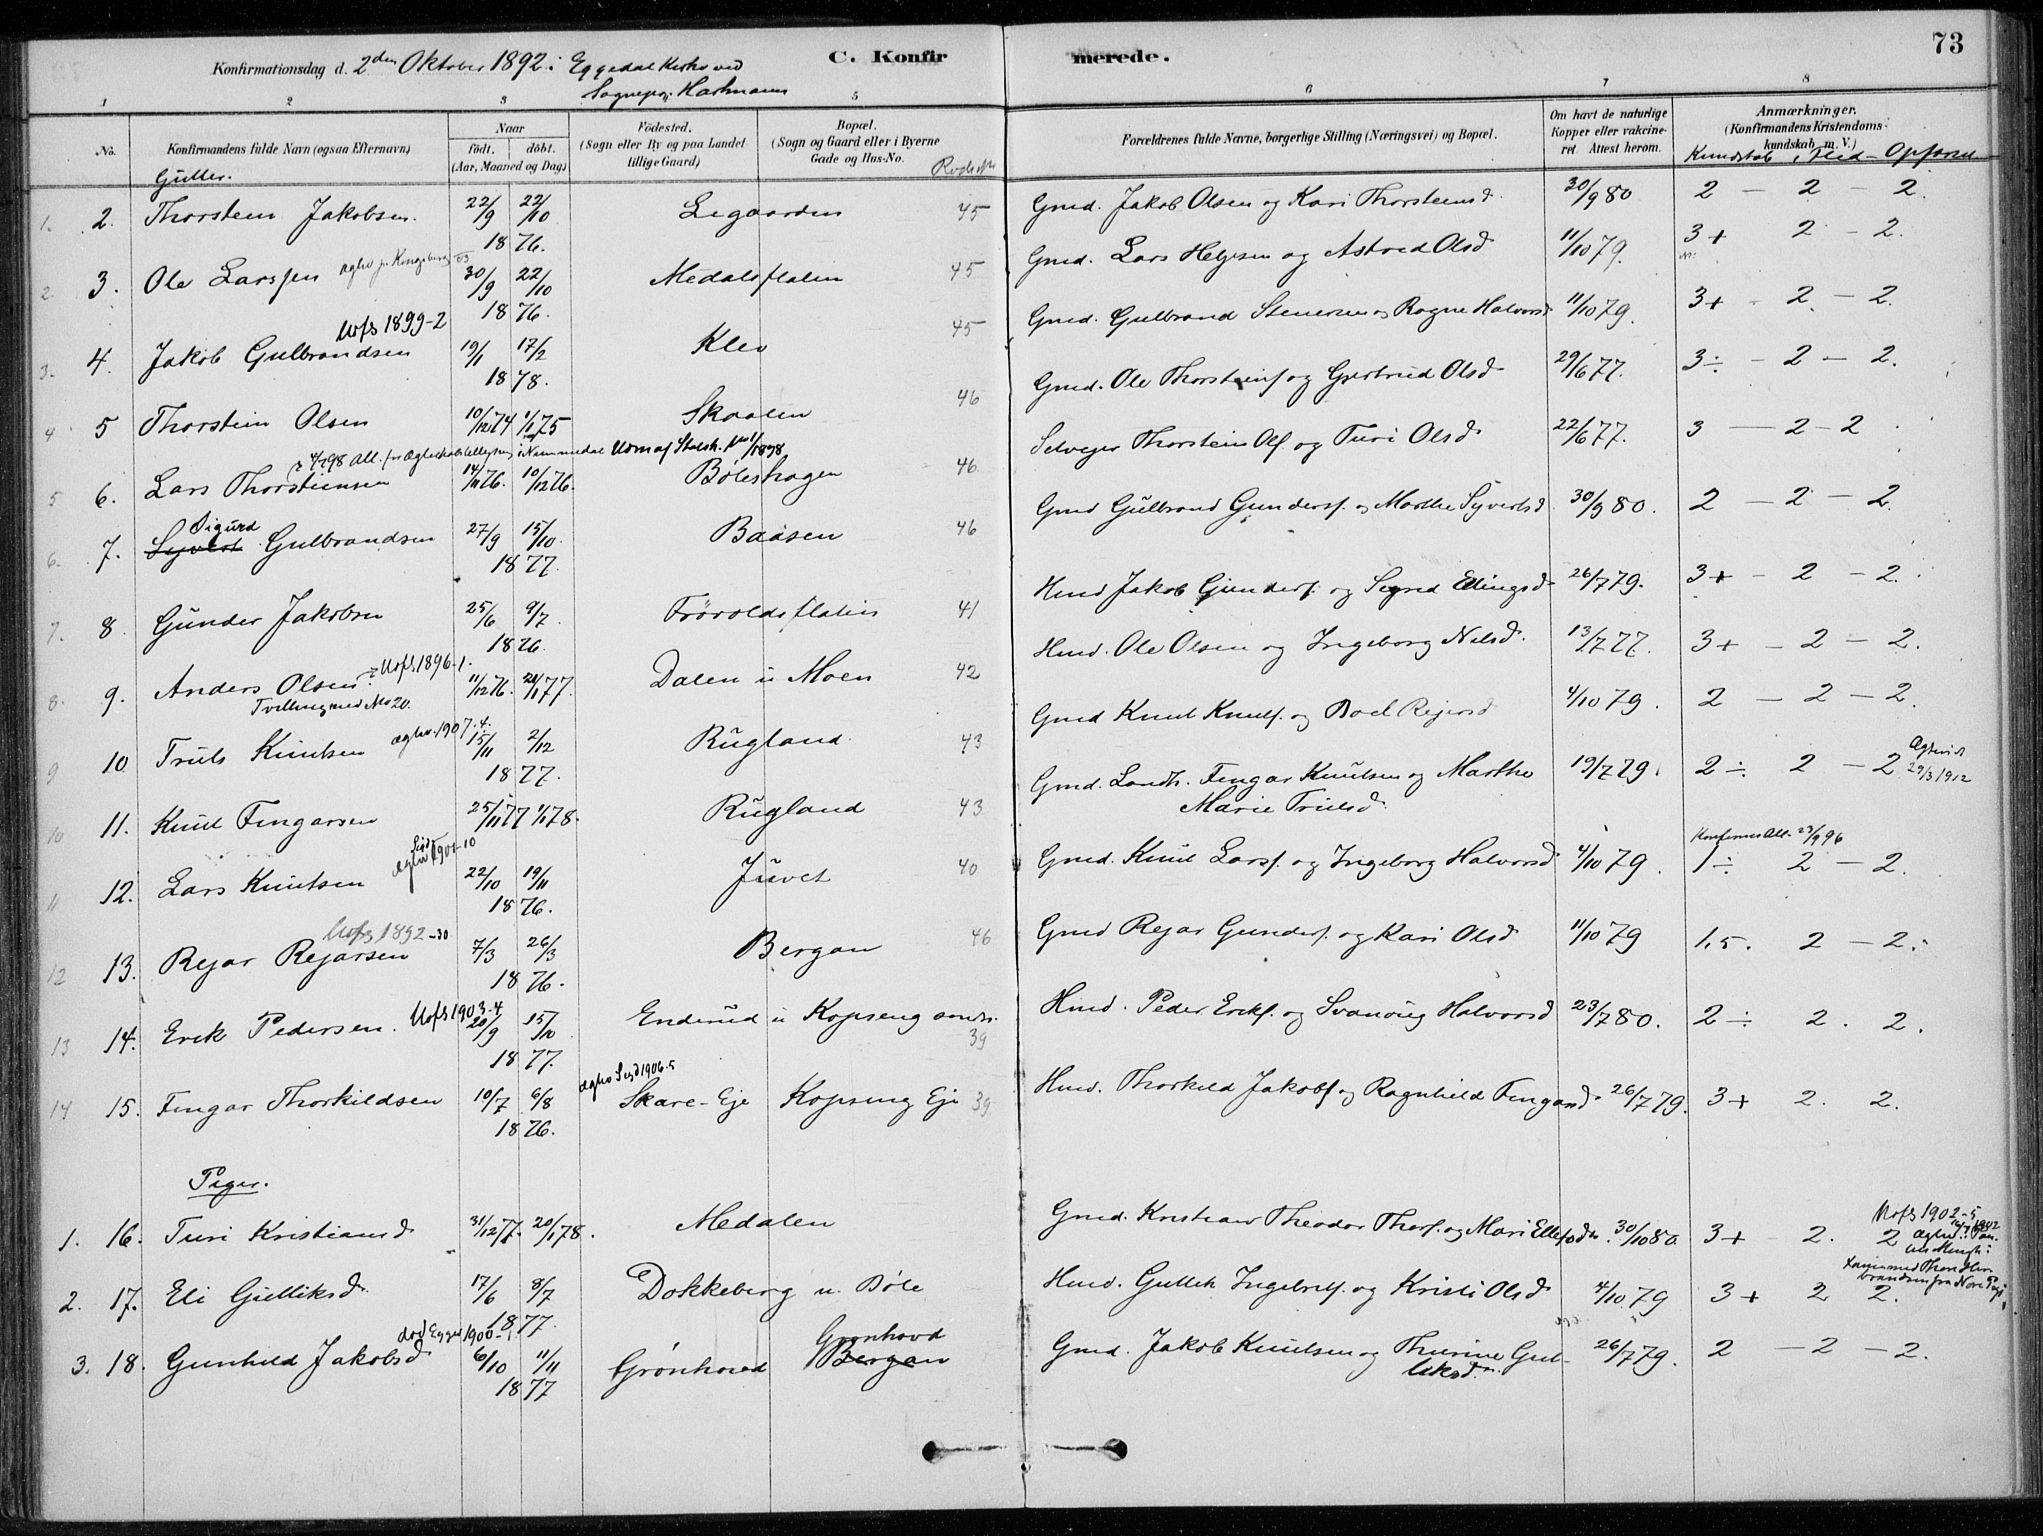 73
Konfirmationsdag d. 2den Oktober 1892 i Eggedal Kirke ved
Sognepr. Hartmann
C. Konfirmerede.
1 2 3 5 6 7 8
No. Konfirmandens fulde Navn (ogsaa Efternavn) Naar født. døbt. (Aar, Maaned og Dag) Fødested. (Sogn eller By og paa Landet tillige Gaard) Bopæl. (Sogn og Gaard eller i Byerne Gade og Hus-No. Forældrenes fulde Navne, borgerlige Stilling (Næringsvei) og Bopæl. Om havt de naturlige Kopper eller vakcineret. Attest herom. Anmærkninger. (Konfirmandens Kristendomskundskab m. V.)
Kundskab, Flid - Opførsel
Gutter.
1. 2. Thorstein Jakobsen 22/9 22/10 1876. Legaarden 45 Gmd. Jakob Olsen og Kari Thorsteinsd. 30/9 80 2 - 2 - 2.
2 3. Ole Larssen 30/9 22/10 1876. Medalsflaten 45 Gmd. Lars Helgesen og Astrid Olsd 11/10 79. 3+ 2 - 2.
Uofs 1899-2
3. 4. Jakob Gulbrandsen 19/1 17/2 1878. Klev 45 Gmd. Gulbrand Stenersen og Ragne Halvorsd 11/10 79. 3+ - 2 - 2.
4 5 Thorstein Olsen 10/12 74 1/1 75 Skaalen 46 Gmd. Ole Thorsteins. og Gjertrud Olsd 29/6 77. 3÷ - 2 - 2.
5 6. Lars Thorsteinsen 14/11 76. 10/12 76. Bøleshagen 46 Selveier Thorstein Ols. og Turi Olsd 22/6 77. 3 - 2 - 2
Sigurd
6. 7. Syvert Gulbrandsen 27/9 15/10 1877. Baasen 46 Gmd Gulbrand Gunders. og Marthe Syvertsd 30/9 80. 2 - 2 - 2.
7. 8 Gunder Jakobsen 25/6 9/7 1876. Frøvoldsflaten 41 Hmd Jakob Gunders. og Sigrid Ellingsd 26/7 79. 3+ - 2 - 2.
Uofs 1896-1.
8. 9. Anders Olsen 11/12 76. 21/1 77. Dalen u Moen 42 Hmd. Ole Olsen og Ingeborg Nilsd. 13/7 77. 3+ - 2 - 2.
Tvilling med No 20.
ægtev. 1907.4.
9 10 Truls Knutsen 15/11 2/12 1877. Rugland 43 Gmd Knut Knuts. og Boel Reijersd 4/10 79. 2 - 2 - 2.
10 11. Knut Fingarsen 25/11 77 1/1 78. Rugland 43 Gmd. Landh. Fingar Knutsen og Marthe Marie Trulsd 19/7 79. 2÷ 2 - 2 29/3 1912
11 12. Lars Knutsen 22/10 19/11 1876. Juvet 40 Gmd. Knut Lars. og Ingeborg Halvorsd 4/10 79. 1÷ 2 - 2.
Uofs 1892-30
12 13. Rejar Rejarsen 7/3 26/3 1876. Bergan 46 Gmd Rejar Gunders. og Kari Olsd 11/10 79 1,5. 2 - 2.
Uofs 1903-4
13 14. Erik Pedersen. 20/9 15/10 1877. Enderud u Kopseng 39 Hmd. Peder Eriks. og Svanaug Halvorsd 23/7 80. 2÷ 2. 2.
14 15. Fingar Thorkildsen 10/7 6/8 1876. Skare-Eje Kopseng Eje 39 Hmd. Thorkild Jakobs. og Ragnhild Fingarsd. 26/7 79. 3+ 2. 2.
Piger.
1. 16. Turi Kristiansd 31/12 77. 20/1 78. Medalen Gmd. Kristian Theodor Thors. og Mari Ellefsdr. 30/10 80. 3+ 2. 2 Uofs 1902-5
2. 17. Eli Gulliksd 17/6 8/7 1877. Dokkeberg u. Bøle Hmd. Gullik Ingebrets. og Kristi Olsd 4/10 79 3+ 2 2.
3. 18. Gunhild Jakobsd 6/10 11/11 1877 Grønhovd Bergan Grønhovd Gmd. Jakob Knutsen og Thurine Gulliksd. 26/7 79. 2 - 2 - 2.